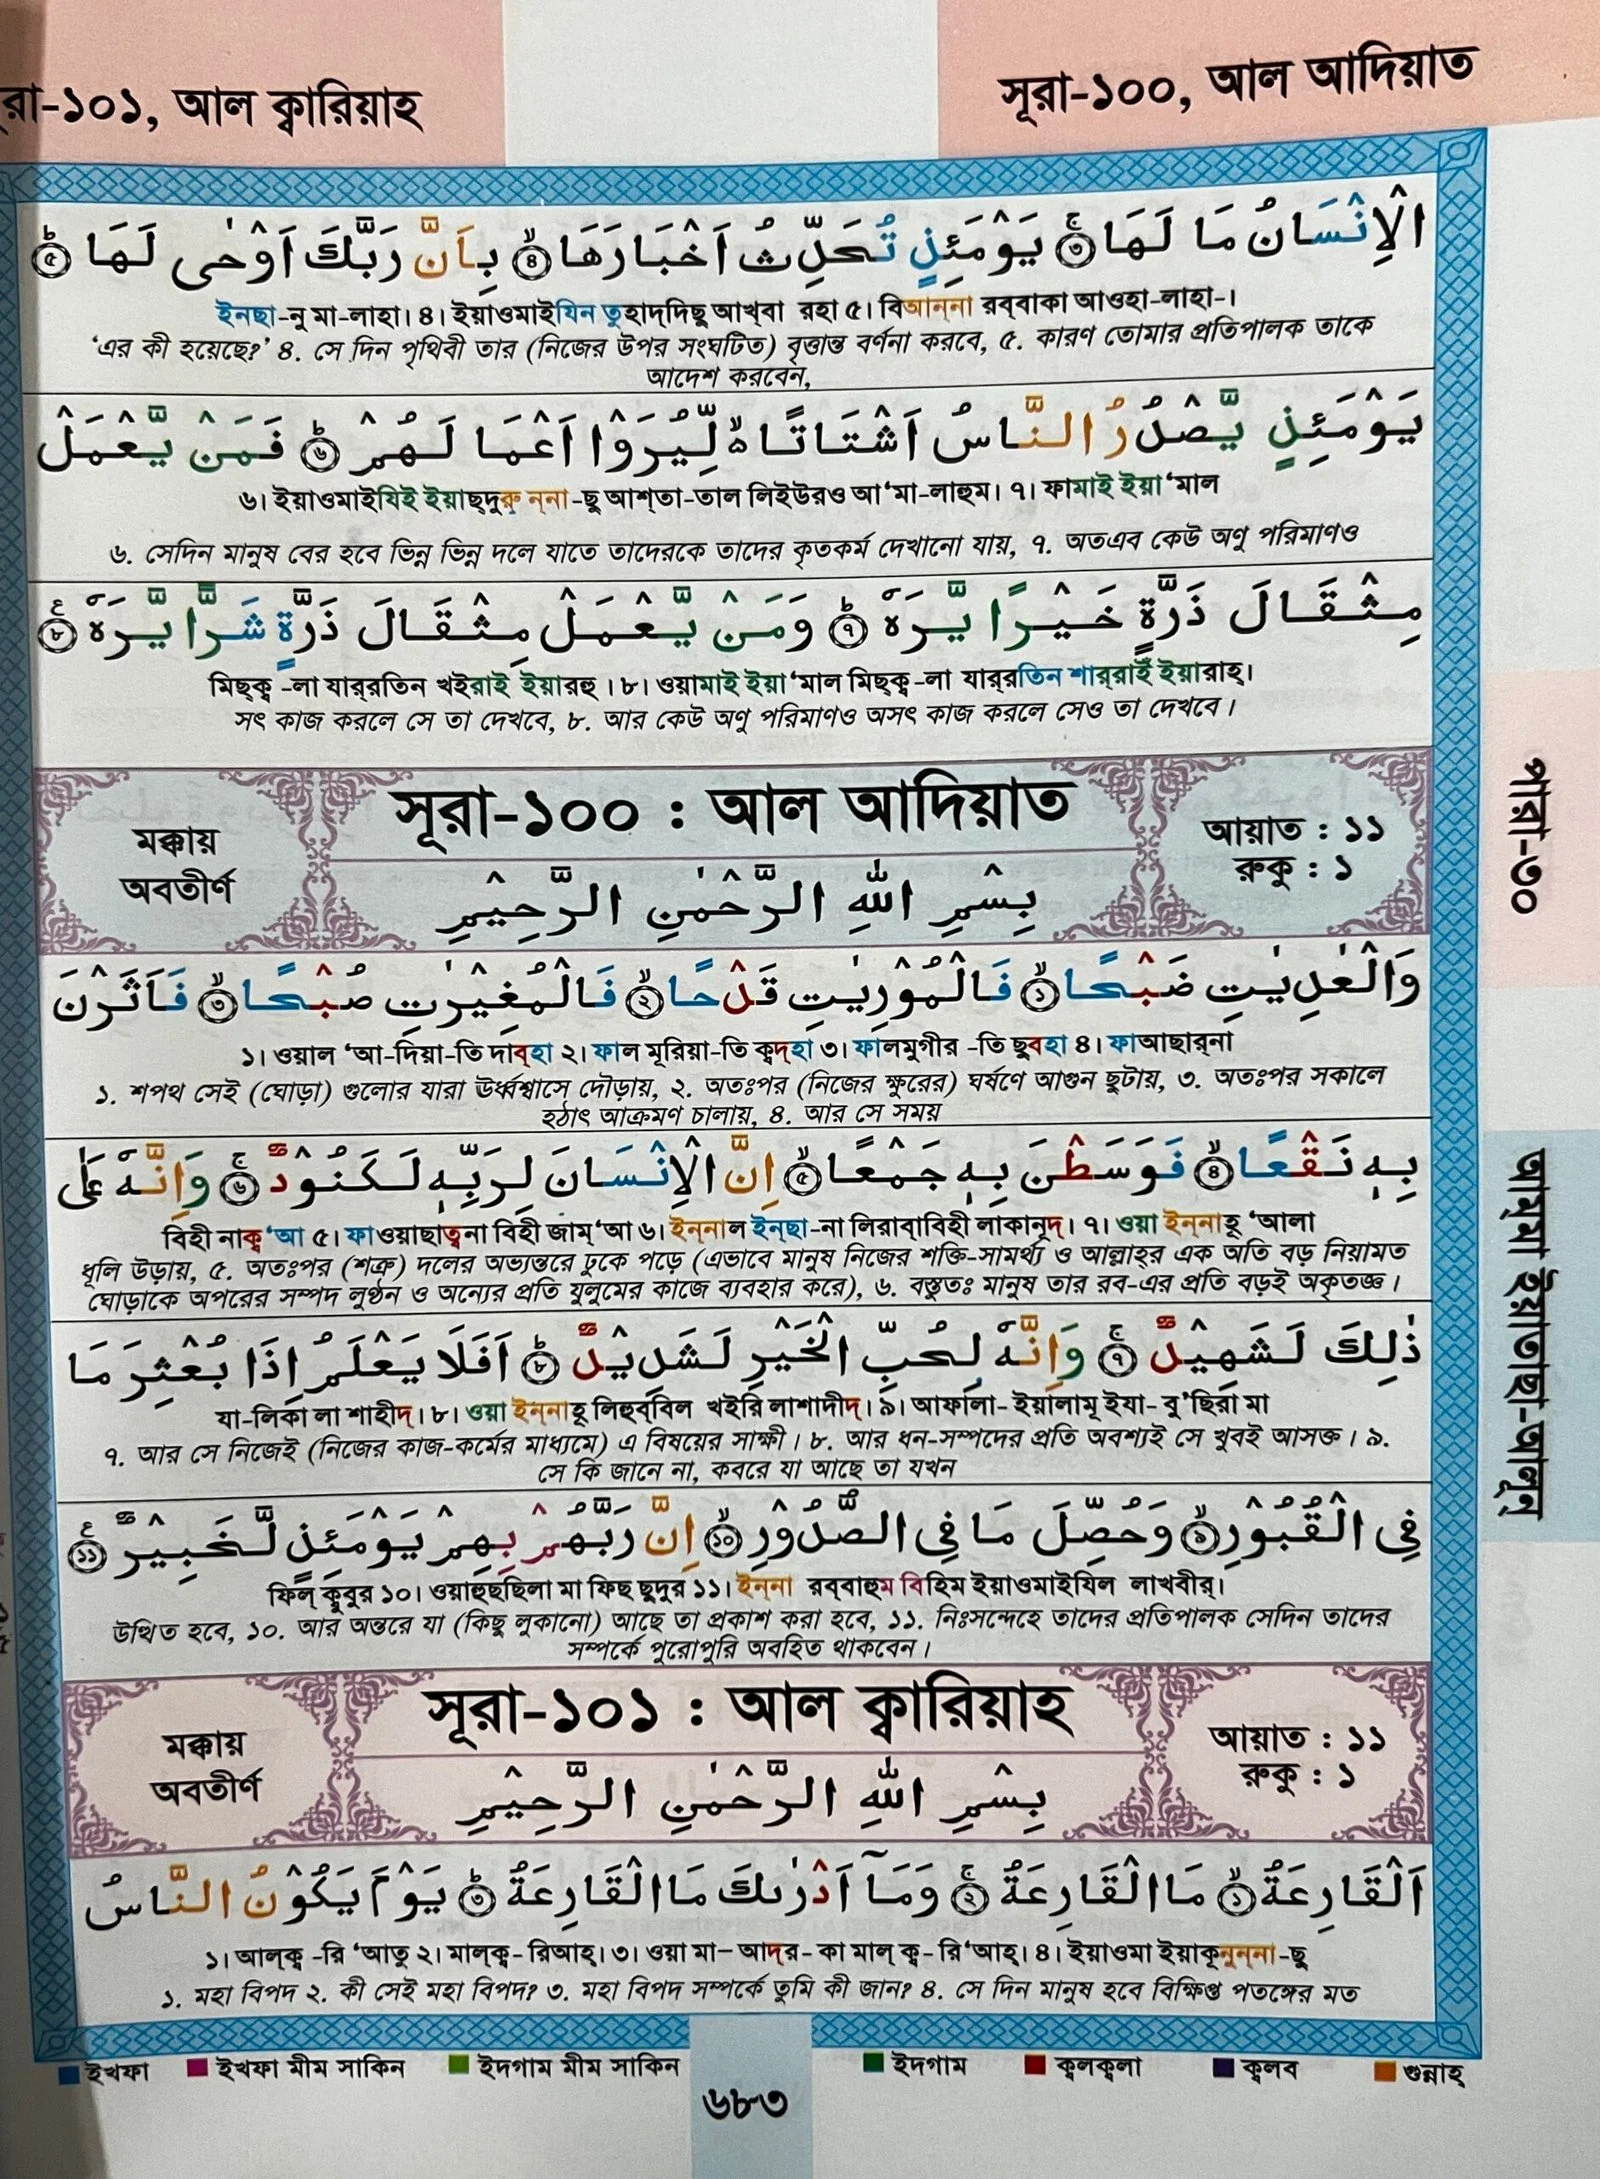 সূরা-১০০, আল আদিয়াত
রা-১০১, আল ক্বারিয়াহ
الْاِنْسَانُ مَا لَهَا ۚ۝٣ يَوْمَئِذٍ تُحَدِّثُ اَخْبَارَهَا ۙ۝٤ بِاَنَّ رَبَّكَ اَوْحٰى لَهَا ؕ۝٥
ইনছা-নু মা-লাহা। ৪। ইয়াওমাইযিন তুহাদ্দিছু আখ্বা রহা ৫। বিআন্না রব্বাকা আওহা-লাহা-।
‘এর কী হয়েছে?’ ৪. সে দিন পৃথিবী তার (নিজের উপর সংঘটিত) বৃত্তান্ত বর্ণনা করবে, ৫. কারণ তোমার প্রতিপালক তাকে
আদেশ করবেন,
يَوْمَئِذٍ يَّصْدُرُ النَّاسُ اَشْتَاتًا ۙ لِّيُرَوْا اَعْمَا لَهُمْ ؕ۝٦ فَمَنْ يَّعْمَلْ
৬। ইয়াওমাইযিই ইয়াছ্দুরু ন্না-ছু আশ্তা-তাল লিইউরও আ‘মা-লাহুম। ৭। ফামাই ইয়া‘মাল
৬. সেদিন মানুষ বের হবে ভিন্ন ভিন্ন দলে যাতে তাদেরকে তাদের কৃতকর্ম দেখানো যায়, ৭. অতএব কেউ অণু পরিমাণও
مِثْقَالَ ذَرَّةٍ خَيْرًا يَّرَهٗ ؕ۝٧ وَمَنْ يَّعْمَلْ مِثْقَالَ ذَرَّةٍ شَرًّا يَّرَهٗ ۝٨
মিছ্ক্ব -লা যার্রতিন খইরাই ইয়ারহু। ৮। ওয়ামাই ইয়া‘মাল মিছ্ক্ব -লা যার্রতিন শার্রাই ইয়ারাহ্।
সৎ কাজ করলে সে তা দেখবে, ৮. আর কেউ অণু পরিমাণও অসৎ কাজ করলে সেও তা দেখবে।
মক্কায়
অবতীর্ণ
সূরা-১০০ : আল আদিয়াত
আয়াত : ১১
রুকু : ১
بِسْمِ اللّٰهِ الرَّحْمٰنِ الرَّحِيْمِ
وَالْعٰدِيٰتِ ضَبْحًا ۙ۝١ فَالْمُوْرِيٰتِ قَدْحًا ۙ۝٢ فَالْمُغِيْرٰتِ صُبْحًا ۙ۝٣ فَاَثَرْنَ
১। ওয়াল ‘আ-দিয়া-তি দাব্হা ২। ফাল মূরিয়া-তি ক্বদ্হা ৩। ফালমুগীর -তি ছুবহা ৪। ফাআছার্না
১. শপথ সেই (ঘোড়া) গুলোর যারা ঊর্ধ্বশ্বাসে দৌড়ায়, ২. অতঃপর (নিজের ক্ষুরের) ঘর্ষণে আগুন ছুটায়, ৩. অতঃপর সকালে
হঠাৎ আক্রমণ চালায়, ৪. আর সে সময়
بِهٖ نَقْعًا ۙ۝٤ فَوَسَطْنَ بِهٖ جَمْعًا ۙ۝٥ اِنَّ الْاِنْسَانَ لِرَبِّهٖ لَكَنُوْدٌ ۚ۝٦ وَاِنَّهٗ عَلٰى
বিহী নাক্ব‘আ ৫। ফাওয়াছাত্বনা বিহী জাম্‘আ ৬। ইন্নাল ইন্ছা-না লিরাব্বিহী লাকানূদ্। ৭। ওয়া ইন্নাহূ ‘আলা
ধূলি উড়ায়, ৫. অতঃপর (শত্রু) দলের অভ্যন্তরে ঢুকে পড়ে (এভাবে মানুষ নিজের শক্তি-সামর্থ্য ও আল্লাহ্‌র এক অতি বড় নিয়ামত
ঘোড়াকে অপরের সম্পদ লুণ্ঠন ও অন্যের প্রতি যুলুমের কাজে ব্যবহার করে), ৬. বস্তুতঃ মানুষ তার রব-এর প্রতি বড়ই অকৃতজ্ঞ।
ذٰلِكَ لَشَهِيْدٌ ۚ۝٧ وَاِنَّهٗ لِحُبِّ الْخَيْرِ لَشَدِيْدٌ ؕ۝٨ اَفَلَا يَعْلَمُ اِذَا بُعْثِرَ مَا
যা-লিকা লা শাহীদ্। ৮। ওয়া ইন্নাহূ লিহুব্বিল খইরি লাশাদীদ্। ৯। আফালা- ইয়ালামূ ইযা- বু‘ছিরা মা
৭. আর সে নিজেই (নিজের কাজ-কর্মের মাধ্যমে) এ বিষয়ের সাক্ষী। ৮. আর ধন-সম্পদের প্রতি অবশ্যই সে খুবই আসক্ত। ৯.
সে কি জানে না, কবরে যা আছে তা যখন
فِى الْقُبُوْرِ ۙ۝٩ وَحُصِّلَ مَا فِى الصُّدُوْرِ ۙ۝١٠ اِنَّ رَبَّهُمْ بِهِمْ يَوْمَئِذٍ لَّخَبِيْرٌ ۝١١
ফিল্ ক্বুবুর ১০। ওয়াহুছছিলা মা ফিছ ছুদুর ১১। ইন্না রব্বাহুম বিহিম ইয়াওমাইযিল লাখবীর্।
উত্থিত হবে, ১০. আর অন্তরে যা (কিছু লুকানো) আছে তা প্রকাশ করা হবে, ১১. নিঃসন্দেহে তাদের প্রতিপালক সেদিন তাদের
সম্পর্কে পুরোপুরি অবহিত থাকবেন।
মক্কায়
অবতীর্ণ
সূরা-১০১ : আল ক্বারিয়াহ
আয়াত : ১১
রুকু : ১
بِسْمِ اللّٰهِ الرَّحْمٰنِ الرَّحِيْمِ
اَلْقَارِعَةُ ۙ۝١ مَا الْقَارِعَةُ ۚ۝٢ وَمَآ اَدْرٰىكَ مَا الْقَارِعَةُ ؕ۝٣ يَوْمَ يَكُوْنُ النَّاسُ
১। আল্ক্ব -রি ‘আতু ২। মাল্ক্ব- রিআহ্। ৩। ওয়া মা– আদ্র - কা মাল্ ক্ব- রি‘আহ্। ৪। ইয়াওমা ইয়াকূনুন্না -ছু
১. মহা বিপদ ২. কী সেই মহা বিপদ? ৩. মহা বিপদ সম্পর্কে তুমি কী জান? ৪. সে দিন মানুষ হবে বিক্ষিপ্ত পতঙ্গের মত
ইখফা ইখফা মীম সাকিন ইদগাম মীম সাকিন ইদগাম ক্বলক্বলা ক্বলব গুন্নাহ্
৬৮৩
পারা-৩০
আম্মা ইয়াতাছা-আলূন্